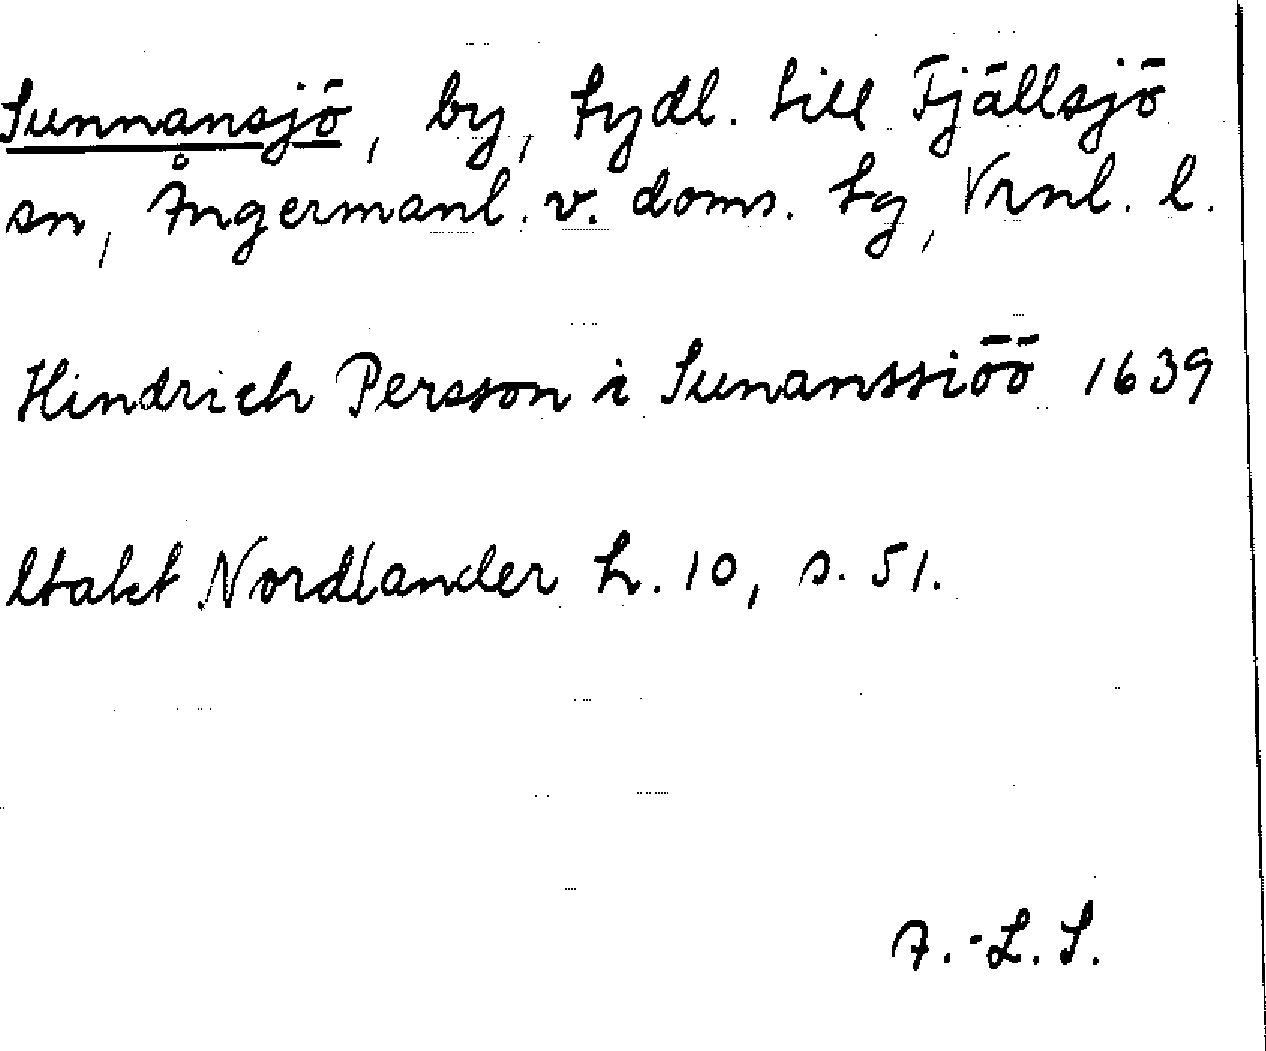 Sunnansjö, by, tydl. till Fjällsjö
sn, Ångermanl. v. doms. tg, Vrnl. l.
Hindrich Persson i Sunanssiöö 1639
Utakt Nordlander h. 10, s. 51.
A.-L. S.